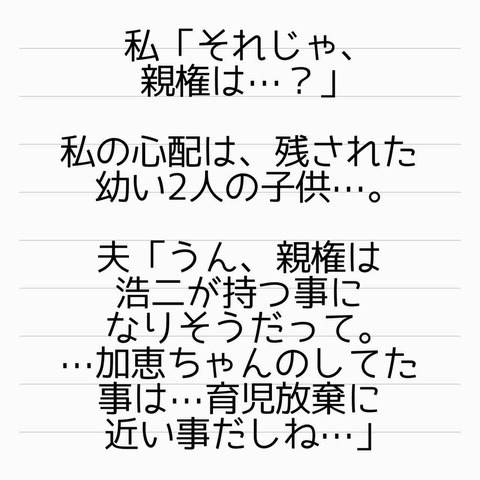 私「それじゃ、
親権は…？」
私の心配は、残された
幼い2人の子供…。
夫「うん、親権は
浩二が持つ事に
なりそうだって。
…加恵ちゃんのしてた
事は…育児放棄に
近い事だしね…」